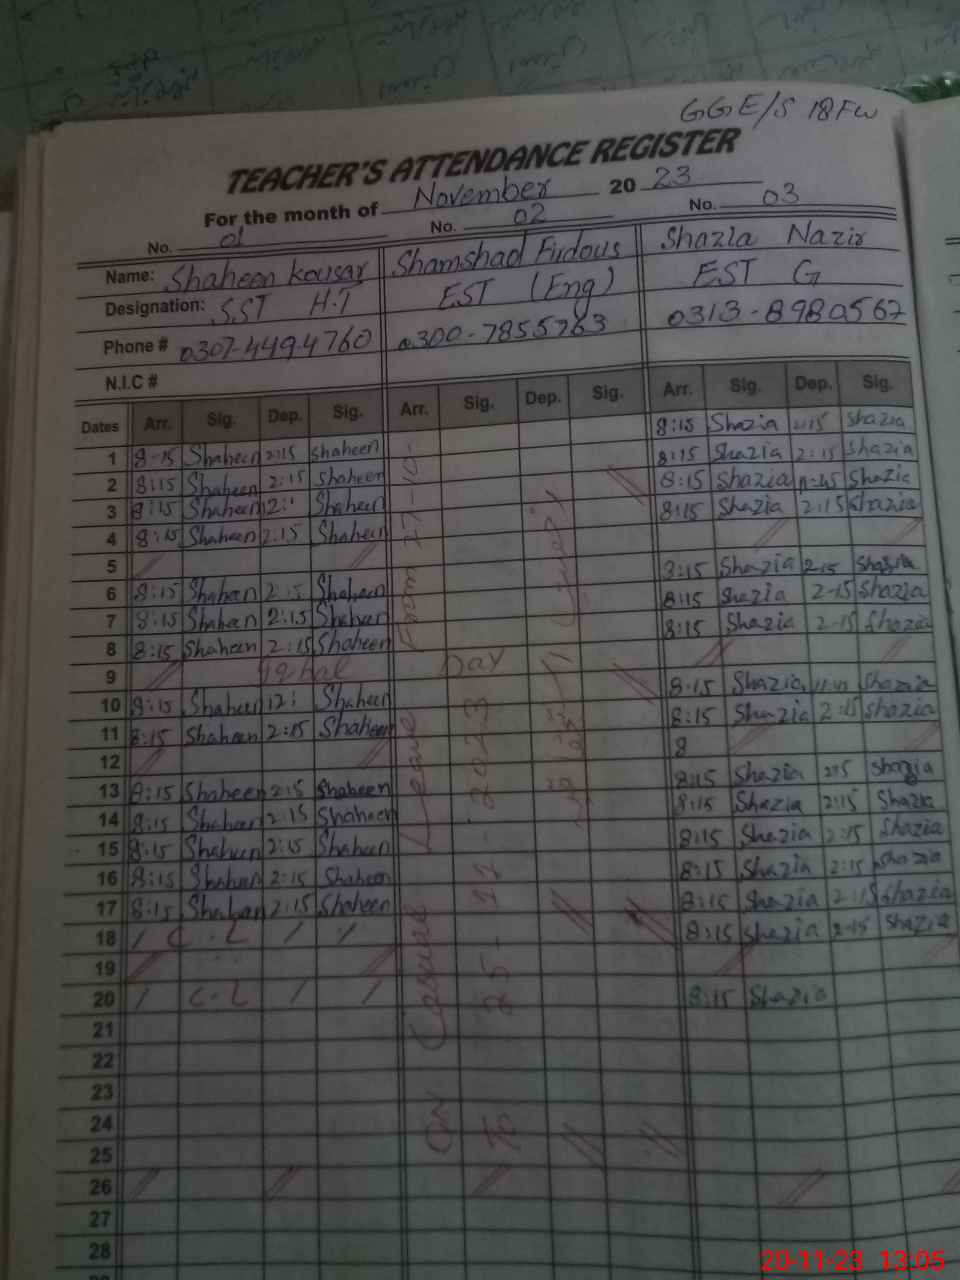 GGE/S 18Fw
TEACHER'S ATTENDANCE REGISTER
For the month of November 2023
No. 01 No. 02 No. 03
Name: Shaheen kousar Shamshad Firdous Shazia Nazir
Designation: S.ST H.T EST (Eng) EST G
Phone # 0307-4494760 0300-7855763 0313-8980567
N.I.C #
Dates Arr. Sig. Dep. Sig. Arr. Sig. Dep. Sig. Arr. Sig. Dep. Sig.
8:15 Shazia 2:15 Shazia
1 8-15 Shaheen 2:15 shaheen 8:15 Shazia 2:15 Shazia
2 8:15 Shaheen 2:15 Shaheen 8:15 Shazia Shazia
3 8:15 Shaheen Shaheen 8:15 Shazia 2:15 Shazia
4 8:15 Shaheen 2:15 Shaheen
5 8:15 Shazia 2:15 Shazia
6 8:15 Shaheen 2:15 Shaheen 8:15 Shazia 2-15 Shazia
7 8:15 Shaheen 2:15 Shaheen 8:15 Shazia 2-15 Shazia
8 8:15 Shaheen 2:15 Shaheen
9 Iqbal Day 8:15 Shazia Shazia
10 8:15 Shaheen Shaheen 8:15 Shazia 2:15 Shazia
11 8:15 Shaheen 2:15 Shaheen 8
12 8:15 Shazia 2:15 Shazia
13 8:15 Shaheen 2:15 Shaheen 8:15 Shazia 2:15 Shazia
14 8:15 Shaheen 2:15 Shaheen 8:15 Shazia 2:15 Shazia
15 8:15 Shaheen 2:15 Shaheen 8:15 Shazia 2:15 Shazia
16 8:15 Shaheen 2:15 Shaheen 8:15 Shazia 2:15 Shazia
17 8:15 Shaheen 2:15 Shaheen 8:15 Shazia 2-15 Shazia
18 / C.L / /
19 8:15 Shazia
20 / C.L / /
21
22
23
24
25
26
27
28
ON Casual Leave From 27-10-
To 25-11-2023
20-11-23 13:05